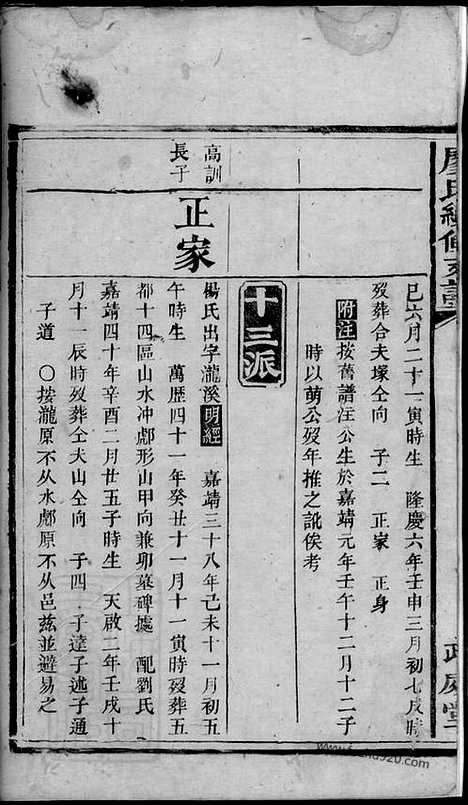 廖氏續修支譜
巳六月二十一寅時生 隆慶六年壬申三月初七戌時
歿葬合夫塚仝向 子二 正家 正身
附注按舊譜注公生於嘉靖元年壬午十二月十二子
時以萌公歿年推之訛俟考
十三派
高訓
長子
正家
楊氏出字瀧溪明經 嘉靖三十八年己未十一月初五
午時生 萬歷四十一年癸丑十一月十一寅時歿葬五
都十四區山水冲形山甲向兼卯墓碑據 配劉氏
嘉靖四十年辛酉二月廿五子時生 天啟二年壬戌十
月十一辰時歿葬仝夫山仝向 子四 子達子述子通
子道 〇按瀧原不从水原不从邑茲並避易之